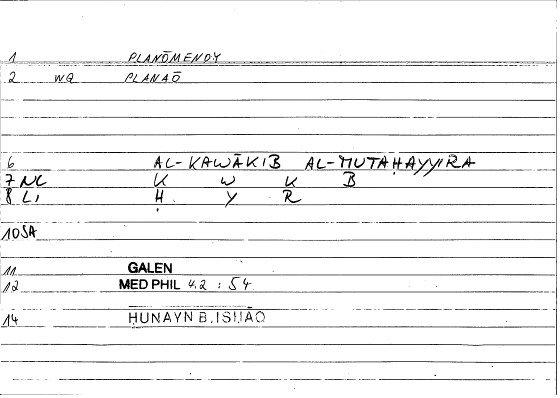 1 PLANŌMENOY
2 WQ PLANAŌ
6 AL-KAWĀKIB AL-MUTAḤAYYIRA
7 NL K W K B
8 LI Ḥ Y R
10 SA
11 GALEN
12 MED PHIL 4.2 : 54
14 ḤUNAYN B. ISḤĀQ